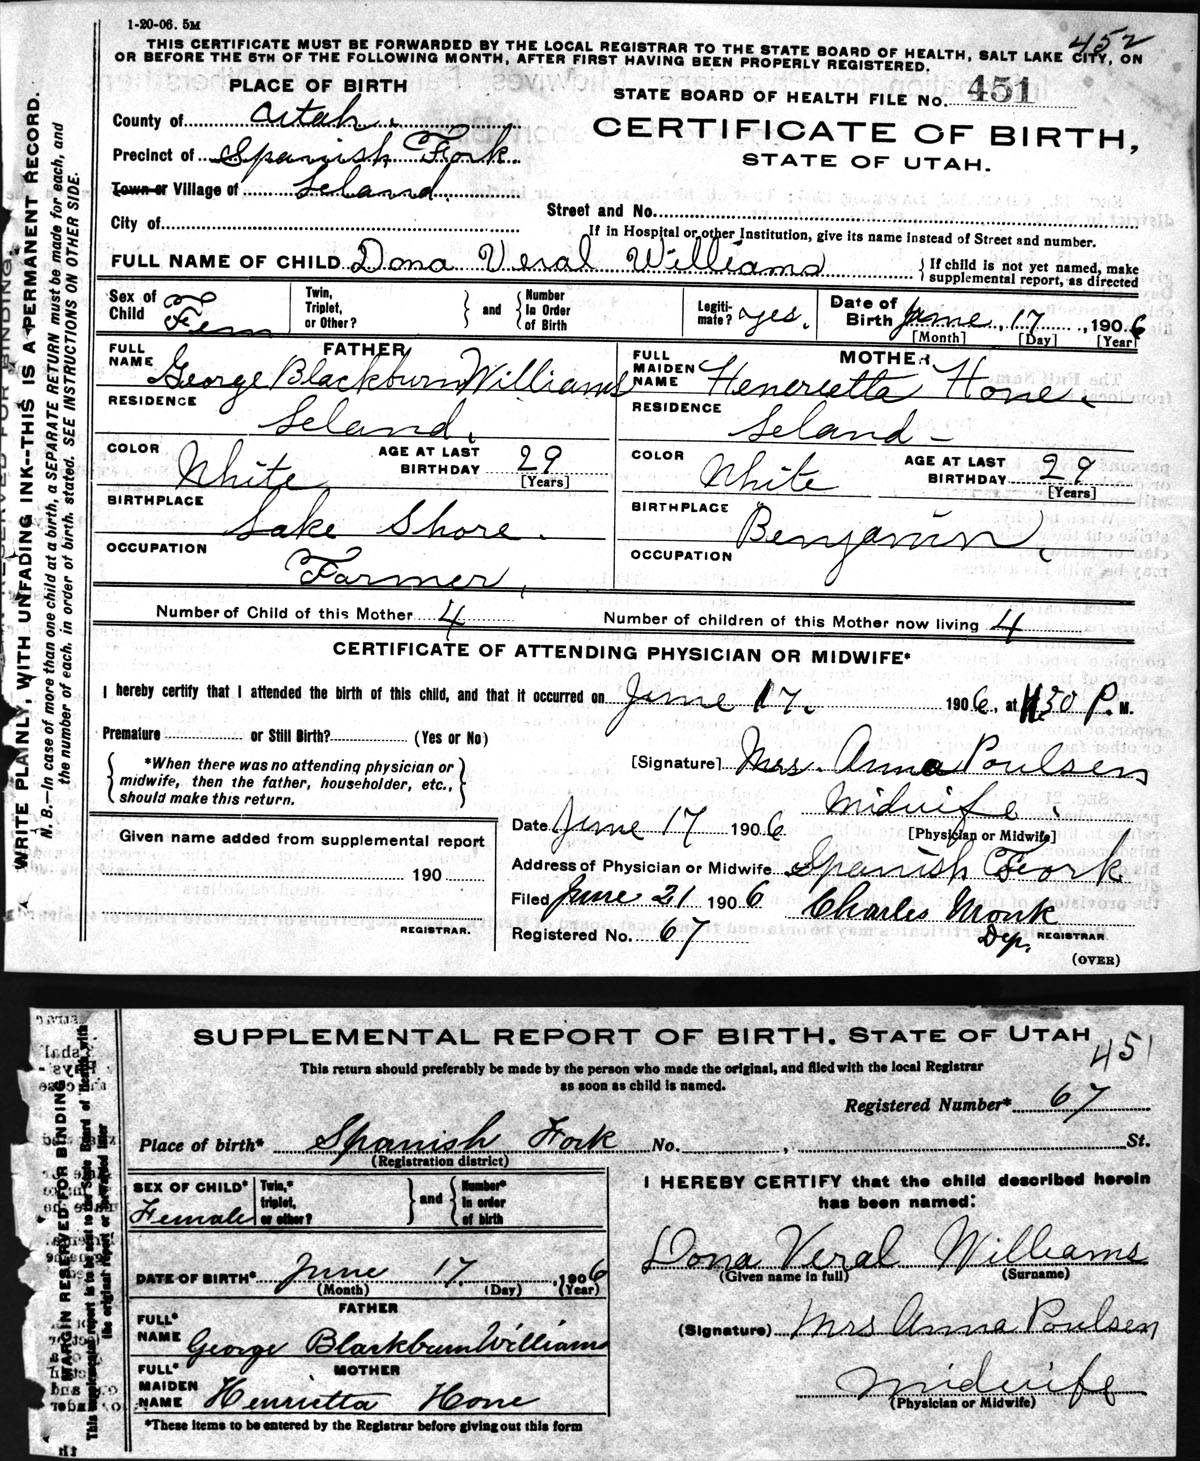 1-20-06. 5M
452
THIS CERTIFICATE MUST BE FORWARDED BY THE LOCAL REGISTRAR TO THE STATE BOARD OF HEALTH, SALT LAKE CITY, ON
OR BEFORE THE 5TH OF THE FOLLOWING MONTH, AFTER FIRST HAVING BEEN PROPERLY REGISTERED.
PLACE OF BIRTH
STATE BOARD OF HEALTH FILE No. 451
County of Utah.
CERTIFICATE OF BIRTH,
STATE OF UTAH.
Precinct of Spanish Fork
Town or Village of Leland.
City of
Street and No.
If in Hospital or other Institution, give its name instead of Street and number.
FULL NAME OF CHILD Dona Veral Williams { If child is not yet named, make
supplemental report, as directed
Sex of Child Fem
Twin, Triplet, or Other? } and { Number In Order of Birth
Legiti-mate? yes.
Date of Birth June, 17, 1906
[Month] [Day] [Year]
FATHER
FULL NAME George Blackburn Williams
RESIDENCE Leland.
COLOR White
AGE AT LAST BIRTHDAY 29 [Years]
BIRTHPLACE Lake Shore.
OCCUPATION Farmer,
MOTHER
FULL MAIDEN NAME Henerietta Hone.
RESIDENCE Leland -
COLOR White
AGE AT LAST BIRTHDAY 29 [Years]
BIRTHPLACE Benjamin.
OCCUPATION
Number of Child of this Mother 4 Number of children of this Mother now living 4
CERTIFICATE OF ATTENDING PHYSICIAN OR MIDWIFE*
I hereby certify that I attended the birth of this child, and that it occurred on June 17. 1906, at 30 P. M.
Premature or Still Birth? (Yes or No)
{ *When there was no attending physician or
midwife, then the father, householder, etc.,
should make this return. }
[Signature] Mrs. Anna Poulsen
Midwife.
[Physician or Midwife]
Date June 17 1906
Address of Physician or Midwife Spanish Fork
Filed June 21 1906 Charles Monk
Dep. REGISTRAR
Registered No. 67
(OVER)
Given name added from supplemental report
190
REGISTRAR.
WRITE PLAINLY, WITH UNFADING INK--THIS IS A PERMANENT RECORD.
N. B.—In case of more than one child at a birth, a SEPARATE RETURN must be made for each, and
the number of each, in order of birth, stated. SEE INSTRUCTIONS ON OTHER SIDE.
SUPPLEMENTAL REPORT OF BIRTH. STATE OF UTAH
451
This return should preferably be made by the person who made the original, and filed with the local Registrar
as soon as child is named.
Registered Number* 67
Place of birth* Spanish Fork No. , St.
(Registration district)
SEX OF CHILD* Female
Twin,* triplet, or other? } and { Number* in order of birth
DATE OF BIRTH* June 17, 1906
(Month) (Day) (Year)
FATHER
FULL* NAME George Blackburn Williams
MOTHER
FULL* MAIDEN NAME Henrietta Hone
*These items to be entered by the Registrar before giving out this form
I HEREBY CERTIFY that the child described herein
has been named:
Dona Veral Williams
(Given name in full) (Surname)
(Signature) Mrs Anna Poulsen
Midwife
(Physician or Midwife)
MARGIN RESERVED FOR BINDING